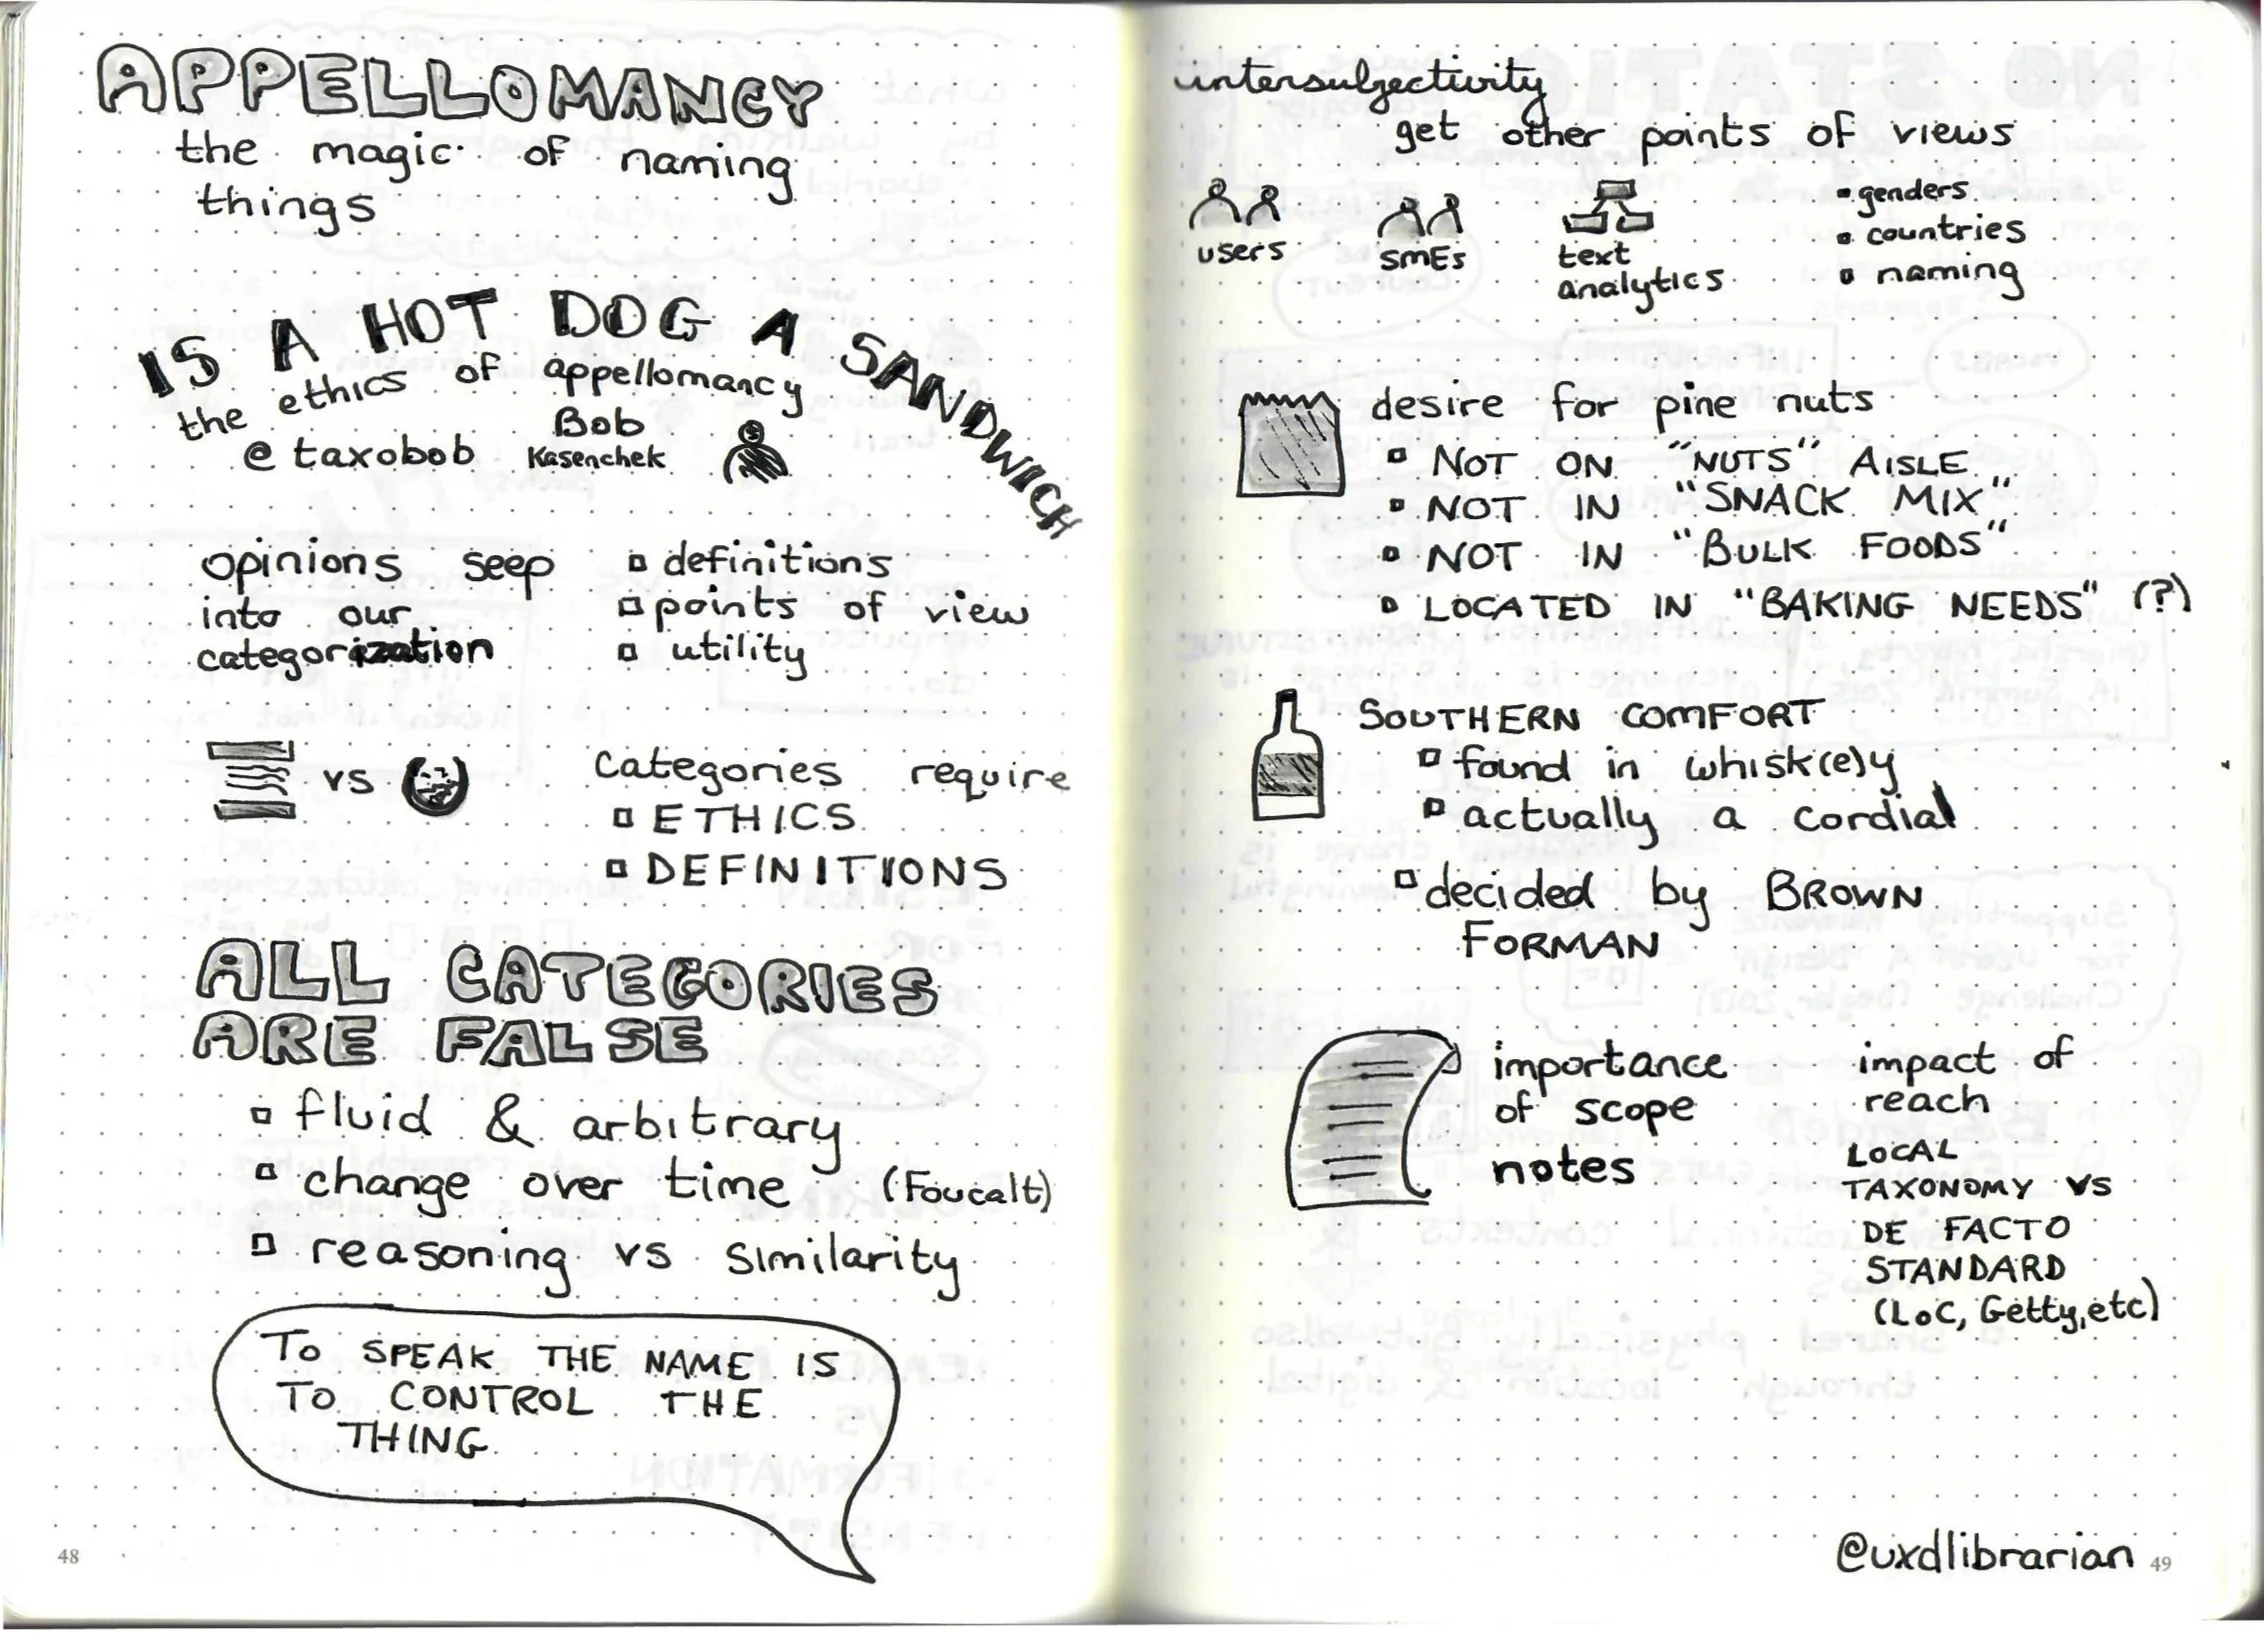 APPELLOMANCY
the magic of naming
things
IS A HOT DOG A SANDWICH
the ethics of appellomancy
@taxobob Bob
Kasenchek
opinions seep
into our
categorization
definitions
points of view
utility
vs
Categories require
ETHICS
DEFINITIONS
ALL CATEGORIES
ARE FALSE
fluid & arbitrary
change over time (Foucalt)
reasoning vs similarity
TO SPEAK THE NAME IS
TO CONTROL THE
THING
48
intersubjectivity
get other points of views
users
SMEs
text
analytics
genders
countries
naming
desire for pine nuts
NOT ON "NUTS" AISLE
NOT IN "SNACK MIX"
NOT IN "BULK FOODS"
LOCATED IN "BAKING NEEDS" (?)
SOUTHERN COMFORT
found in whisk(e)y
actually a cordial
decided by BROWN
FORMAN
importance
of scope
notes
impact of
reach
LOCAL
TAXONOMY VS
DE FACTO
STANDARD
(LoC, Getty, etc)
@uxdlibrarian
49